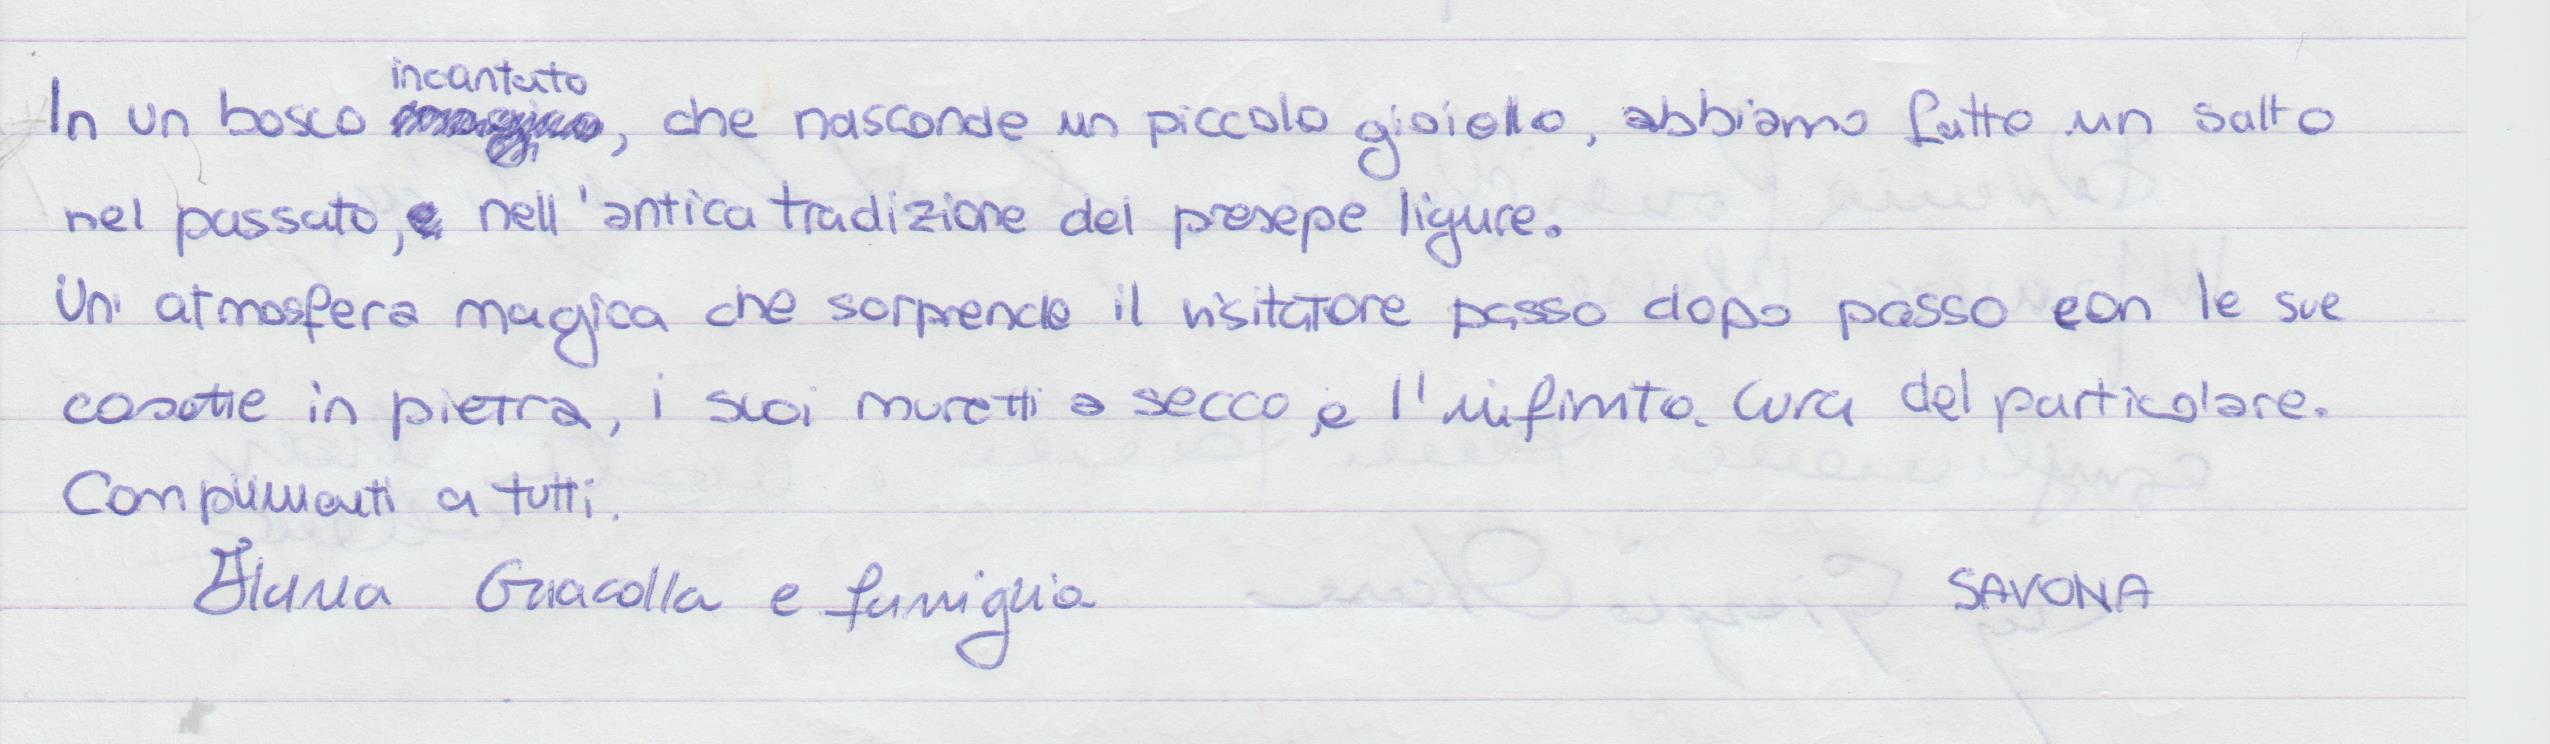 In un bosco incantato, che nasconde un piccolo gioiello, abbiamo fatto un salto
nel passato, e nell'antica tradizione del presepe ligure.
Un' atmosfera magica che sorprende il visitatore passo dopo passo con le sue
casette in pietra, i suoi muretti a secco, e l'infinita cura del particolare.
Complimenti a tutti.
Guacolla e famiglia SAVONA